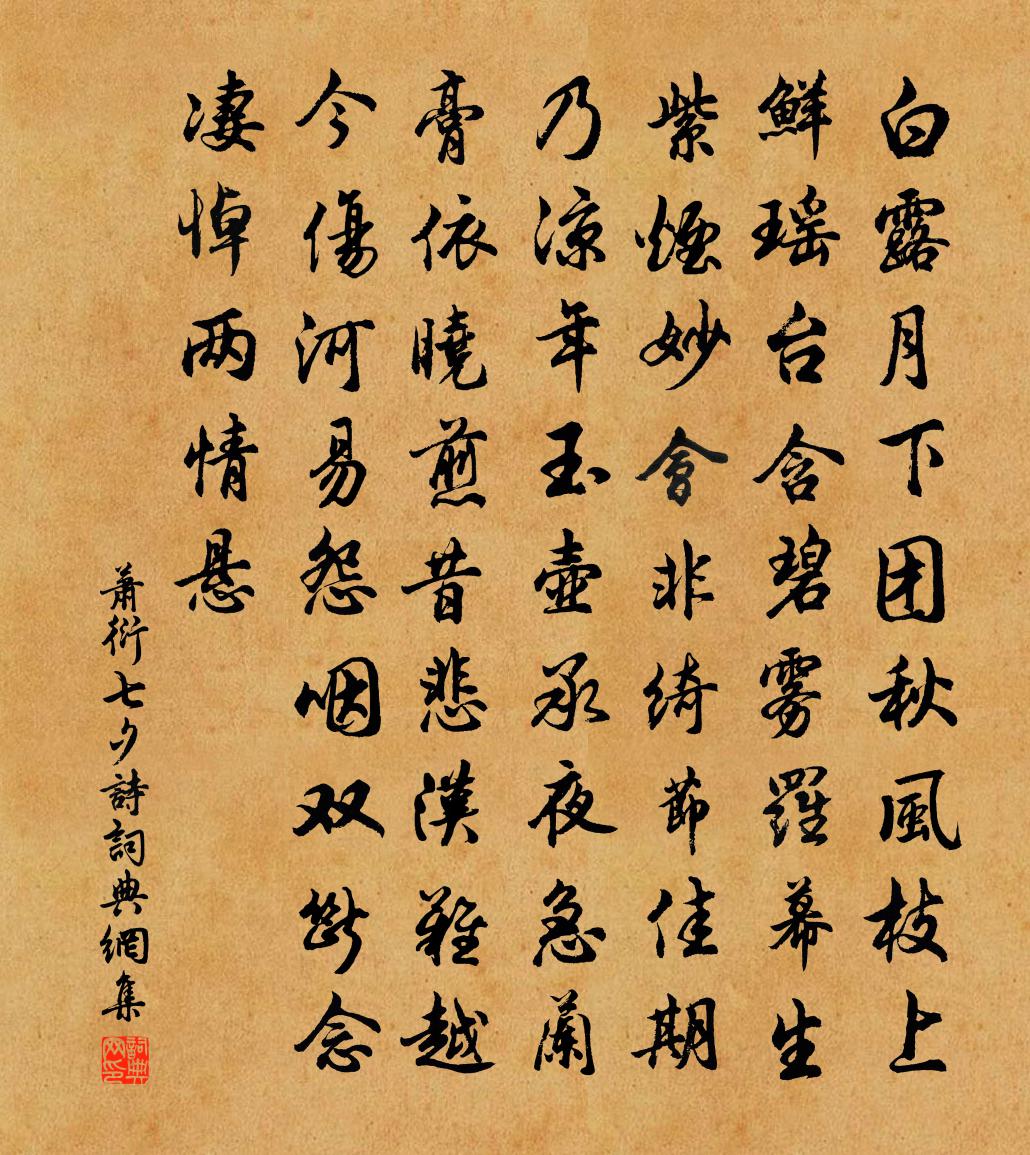 白露月下团秋風枝上
鮮瑶台含碧雾羅幕生
紫煙妙會非綺節佳期
乃凉年玉壺承夜急蘭
膏依曉煎昔悲漢難越
今傷河易怨咽双斷念
凄悼两情悬
萧衍七夕詩詞典網集
詞典网印